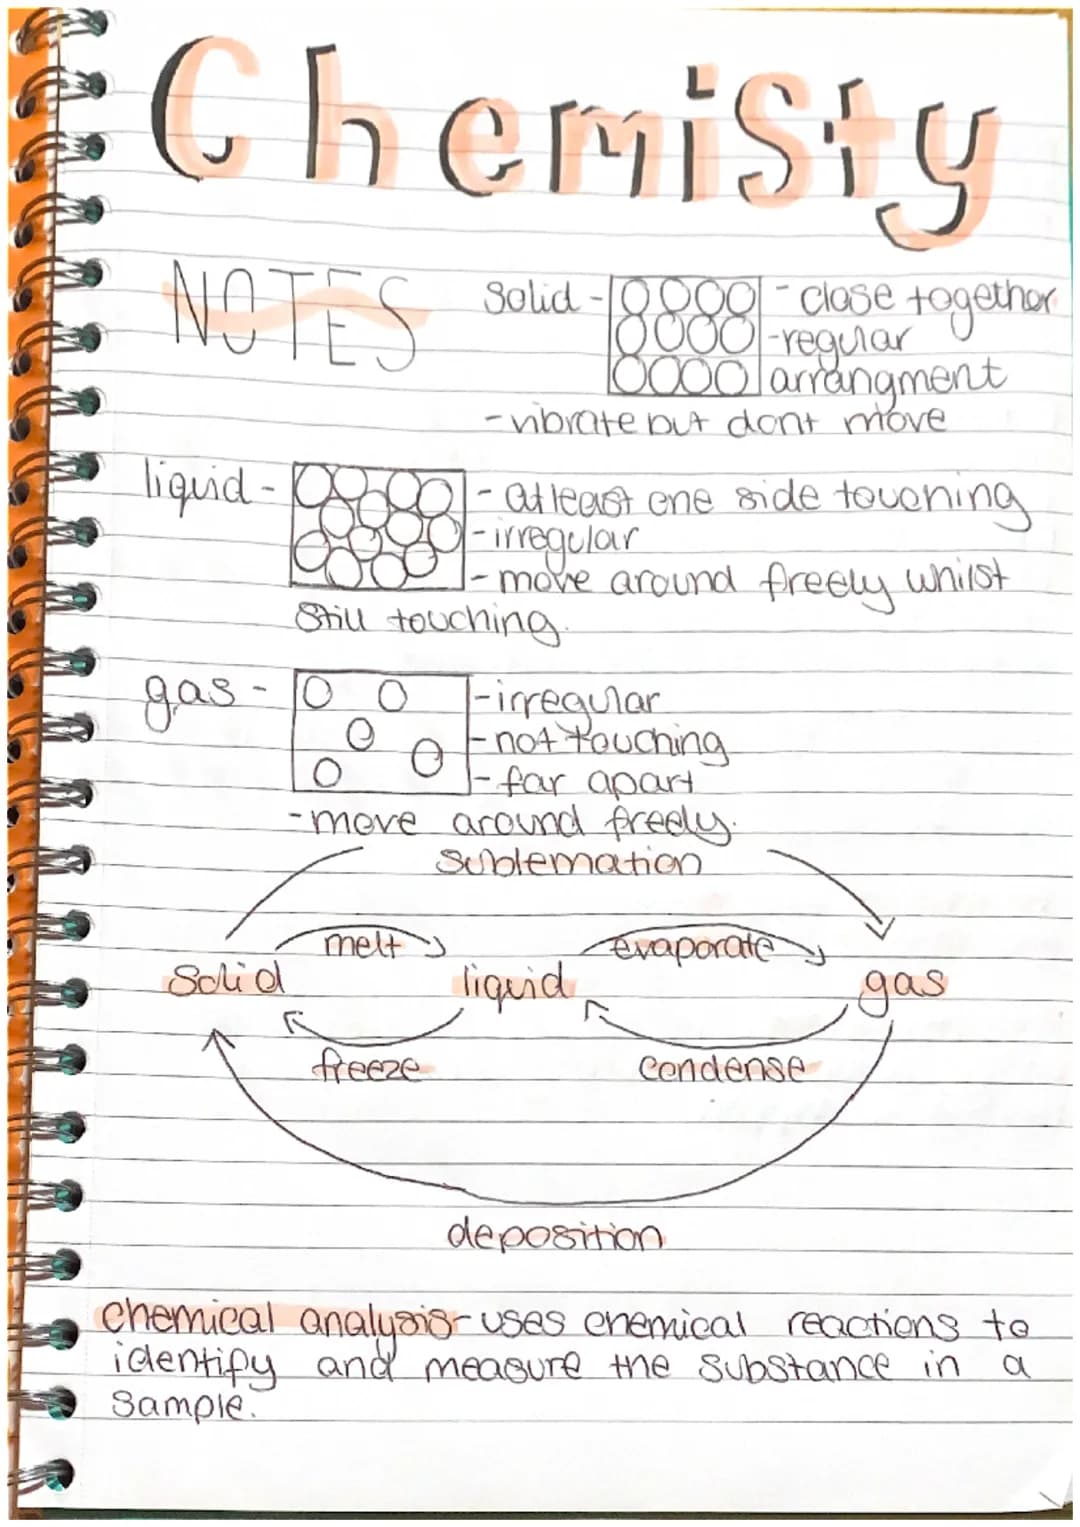 Chemisty
NOTES
Solid - - close together
-regular
arrangment
- vibrate but dont move
liquid - - at least one side touching
- irregular
- move around freely whilst
Still touching.
gas - - irregular
- not touching
- far apart
- move around freely.
Sublemation
melt evaporate
Solid liquid gas
freeze condense
deposition
chemical analysis - uses chemical reactions to
identify and measure the substance in a
Sample.